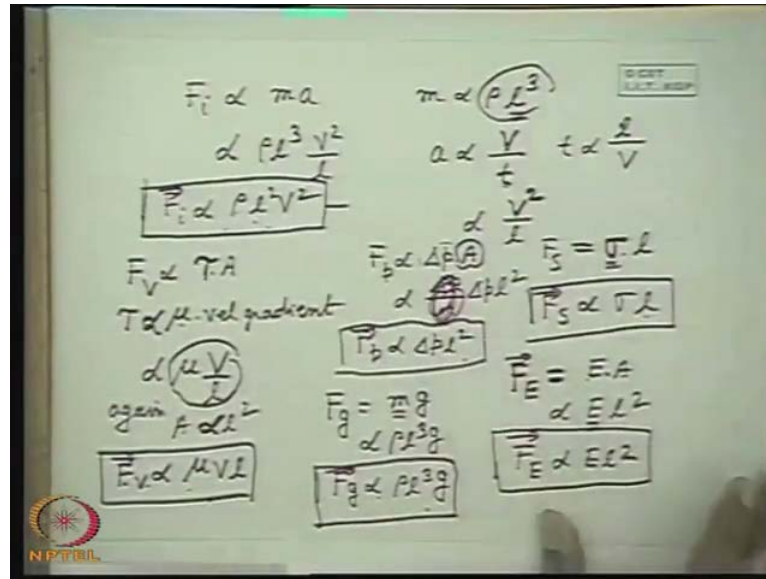 F_i ∝ ma
∝ ρl³ V²/l
F⃗_i ∝ ρl²V²
m ∝ ρl³
a ∝ V/t   t ∝ l/V
∝ V²/l
F_V ∝ τ.A
τ ∝ μ.vel gradient
∝ μ V/l
again A ∝ l²
F⃗_V ∝ μVl
F_p ∝ Δp A
∝ Δpl²
F⃗_p ∝ Δpl²
F_g = mg
∝ ρl³g
F⃗_g ∝ ρl³g
F_S = σ.l
F⃗_S ∝ σl
F⃗_E = E.A
∝ El²
F⃗_E ∝ El²
I.I.T. KGP
NPTEL